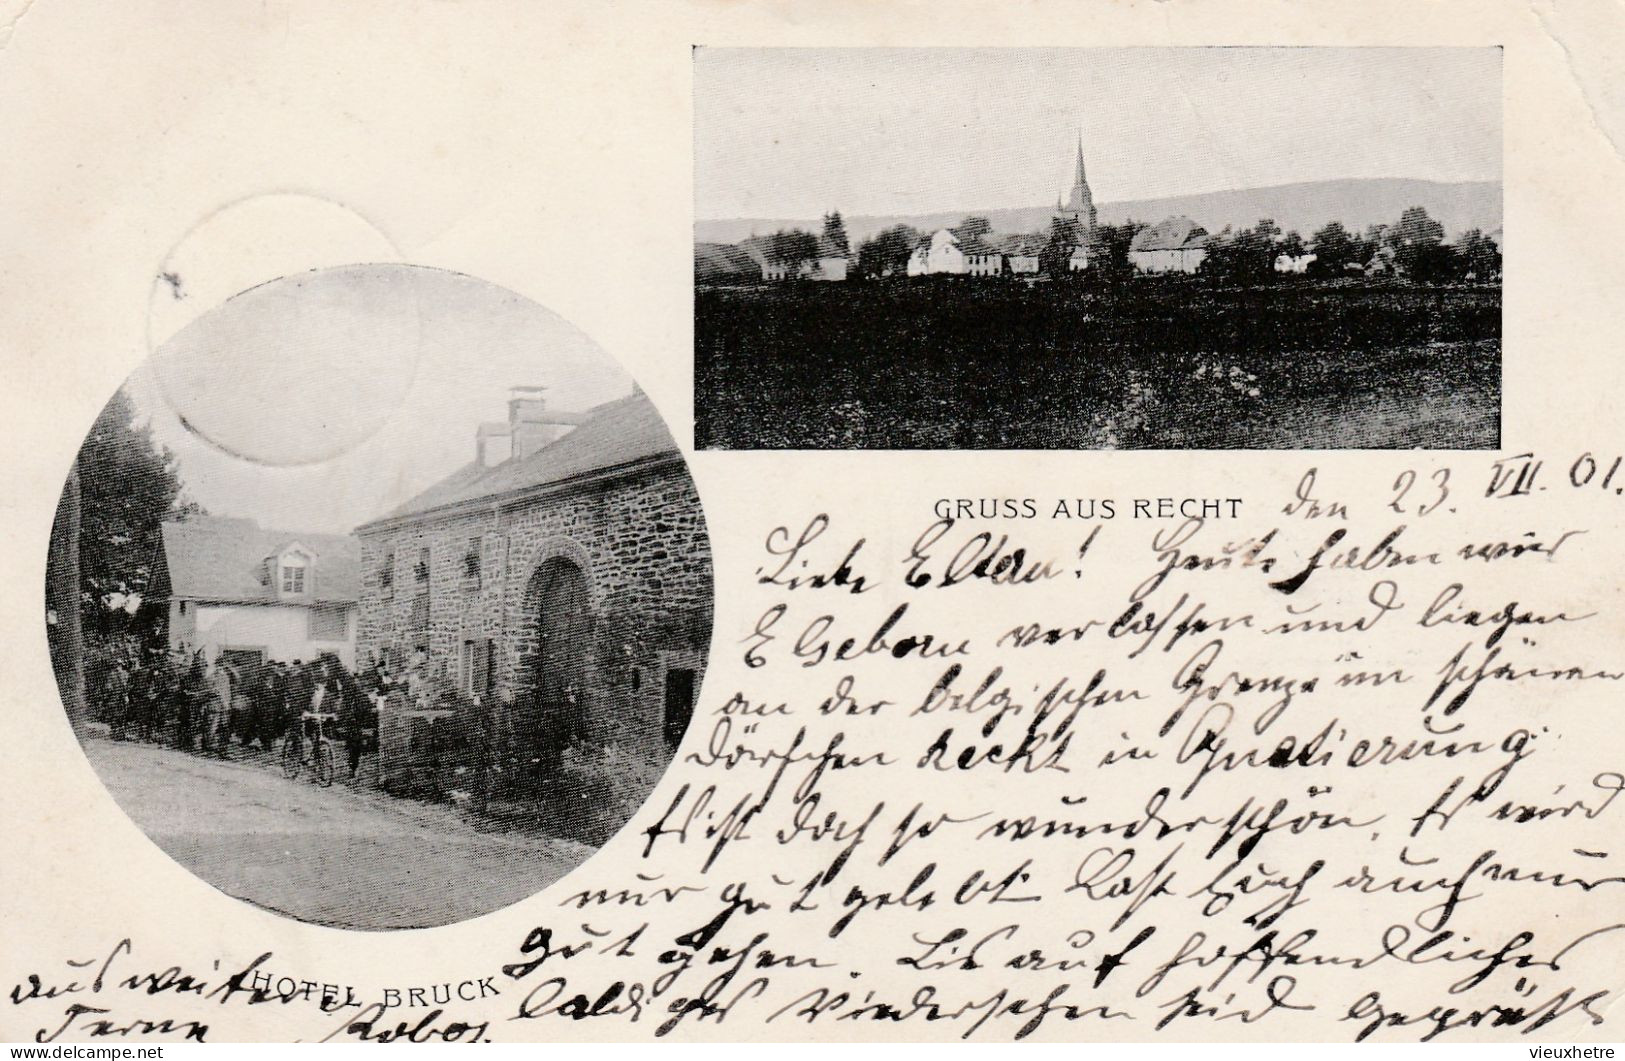 GRUSS AUS RECHT
den 23. VII. 01.
Liebe Eltern! Heute haben wir
Elsenborn verlassen und liegen
an der belgischen Grenze im schönen
Dörfchen Recht in Quatierung
Es ist doch so wunderschön. Es wird
nur gut gelebt. Lasst Euch auch nur
gut gehen. Bis auf hoffendliches
baldiges Wiedersehen seid gegrüßt
aus weiter
Ferne
HOTEL BRUCK
vieuxhetre